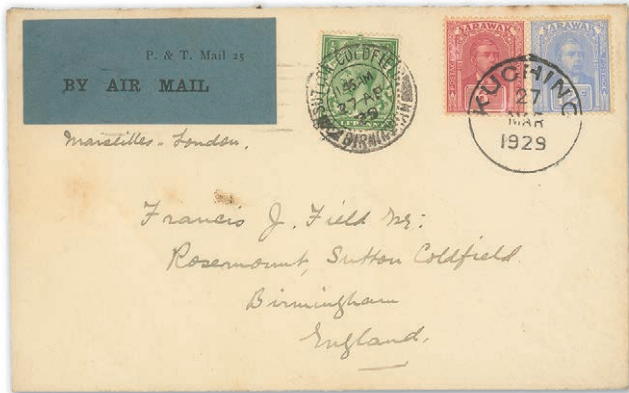 P. & T. Mail 25
BY AIR MAIL
SUTTON COLDFIELD
11.45 AM
27 AP
29
BIRMINGHAM
SARAWAK SARAWAK
KUCHING
27
MAR
1929
Marseilles - London.
Francis J. Field Esq:
Rosemount, Sutton Coldfield.
Birmingham
England.